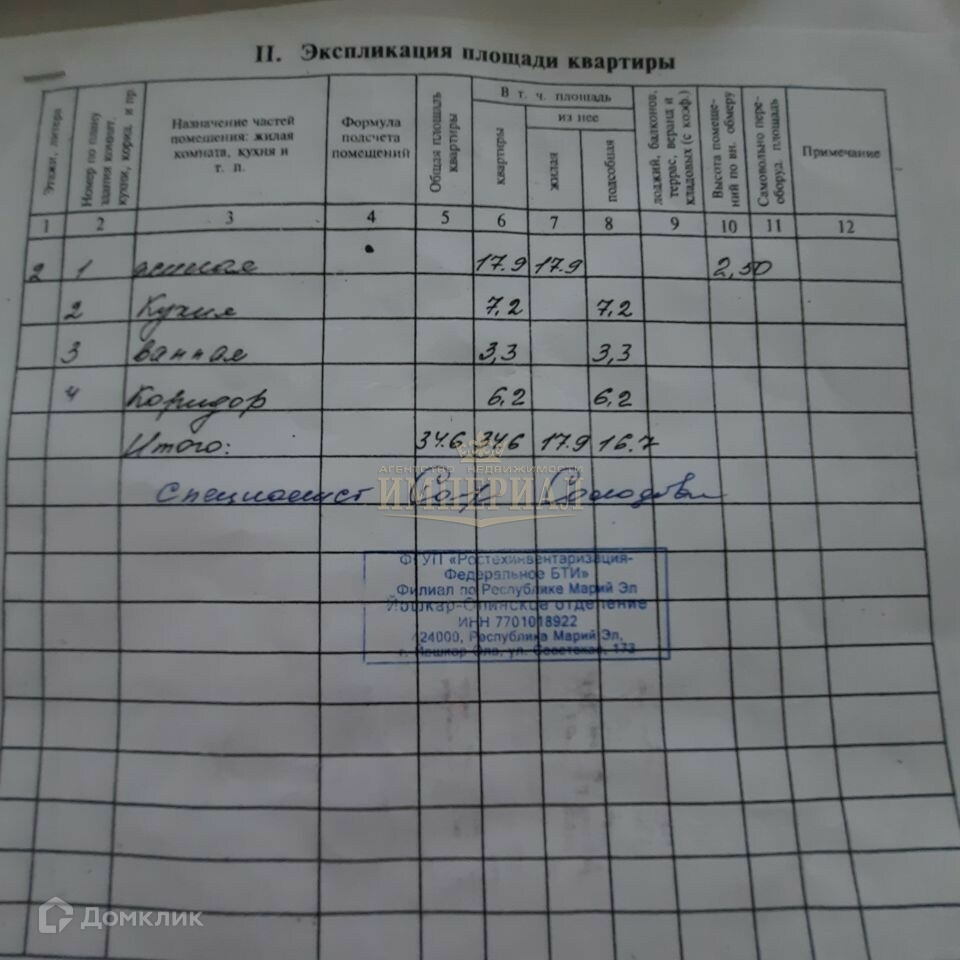 II. Экспликация площади квартиры
Этажи, литера
Номер по плану здания комнат, кухни, корид. и пр
Назначение частей помещения: жилая комната, кухня и т. п.
Формула подсчета помещений
Общая площадь квартиры
В т. ч. площадь
квартиры
из нее
жилая
подсобная
лоджий, балконов, террас, веранд и кладовых (с коэф.)
Высота помещений по вн. обмеру
Самовольно переоборуд. площадь
Примечание
1 2 3 4 5 6 7 8 9 10 11 12
2 1 жилая 17.9 17.9 2,50
2 Кухня 7,2 7,2
3 ванная 3,3 3,3
4 Коридор 6,2 6,2
Итого: 34.6 34.6 17.9 16.7
Специалист
АГЕНТСТВО НЕДВИЖИМОСТИ
ИМПЕРИАЛ
ФГУП «Ростехинвентаризация-
Федеральное БТИ»
Филиал по Республике Марий Эл
Йошкар-Олинское отделение
ИНН 7701018922
424000, Республика Марий Эл,
г. Йошкар-Ола, ул. Советская, 173
Домклик